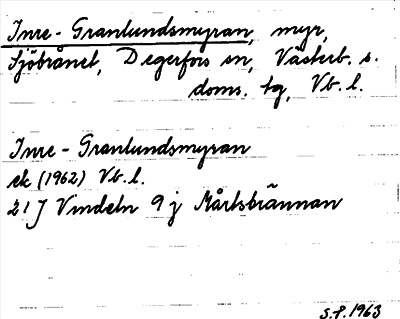 Inre-Granlundsmyran, myr,
Sjöbrånet, Degerfors sn, Västerb. s.
doms. tg, Vb. l.
Inre-Granlundsmyran
ek (1962) Vb. l.
21 J Vindeln 9 j Mårtsbrännan
S.P. 1963